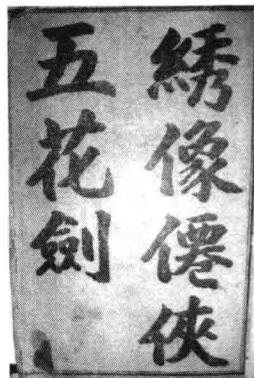 綉像僊俠
五花劍